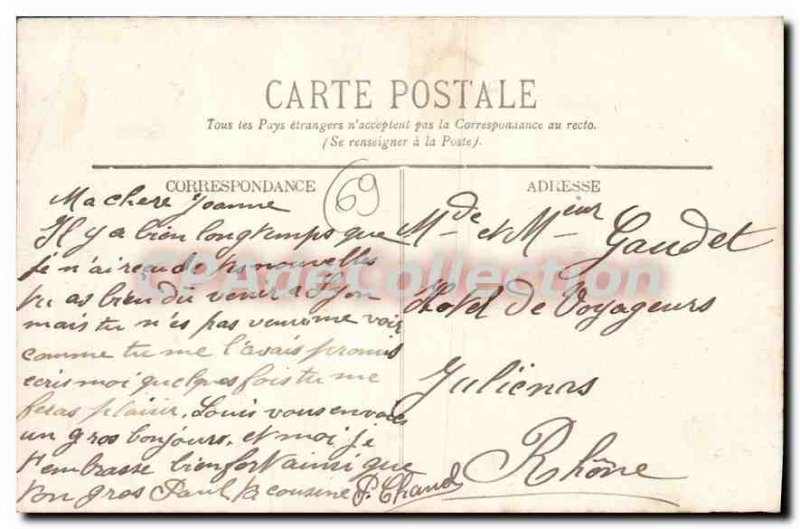 CARTE POSTALE
Tous les Pays étrangers n'acceptent pas la Correspondance au recto.
(Se renseigner à la Poste).
CORRESPONDANCE
69
Ma chere Joanne
Il y a bien longtemps que
je n'ai reçu de tes nouvelles
tu as bien dû venir a Lyon
mais tu n'es pas venue me voir
comme tu me l'avais promis
ecris moi quelques fois tu me
feras plaisir. Louis vous envoie
un gros bonjours. et moi je
t'embrasse bien fort ainsi que
ton gros Paul ta cousine P. Chaud
ADRESSE
Mde et Mieur Gaudet
Hotel de Voyageurs
Julienas
Rhône
CPA Collection